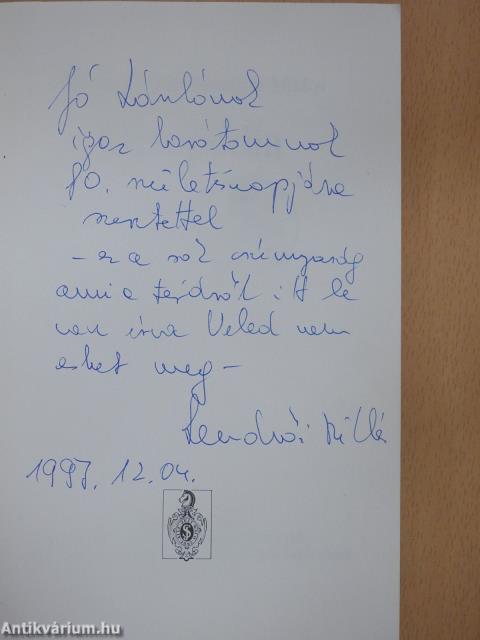 Jó Lászlónak
igaz barátomnak
50. születésnapjára
szeretettel
- ez a sok csúnyaság
ami a térdről itt le
van írva Veled nem
eshet meg -
Lendvai
1997. 12. 04.
Antikvárium.hu